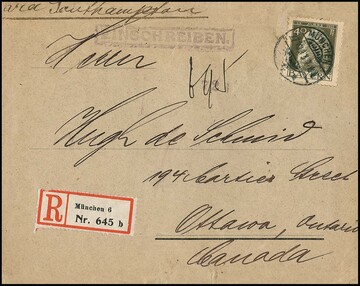 via Southampton
EINSCHREIBEN.
Herr
40
MÜNCHEN
Hugh de Schmid
194 Cartier Street
Ottawa, Ontario
Canada
R
München 6
Nr. 645 b